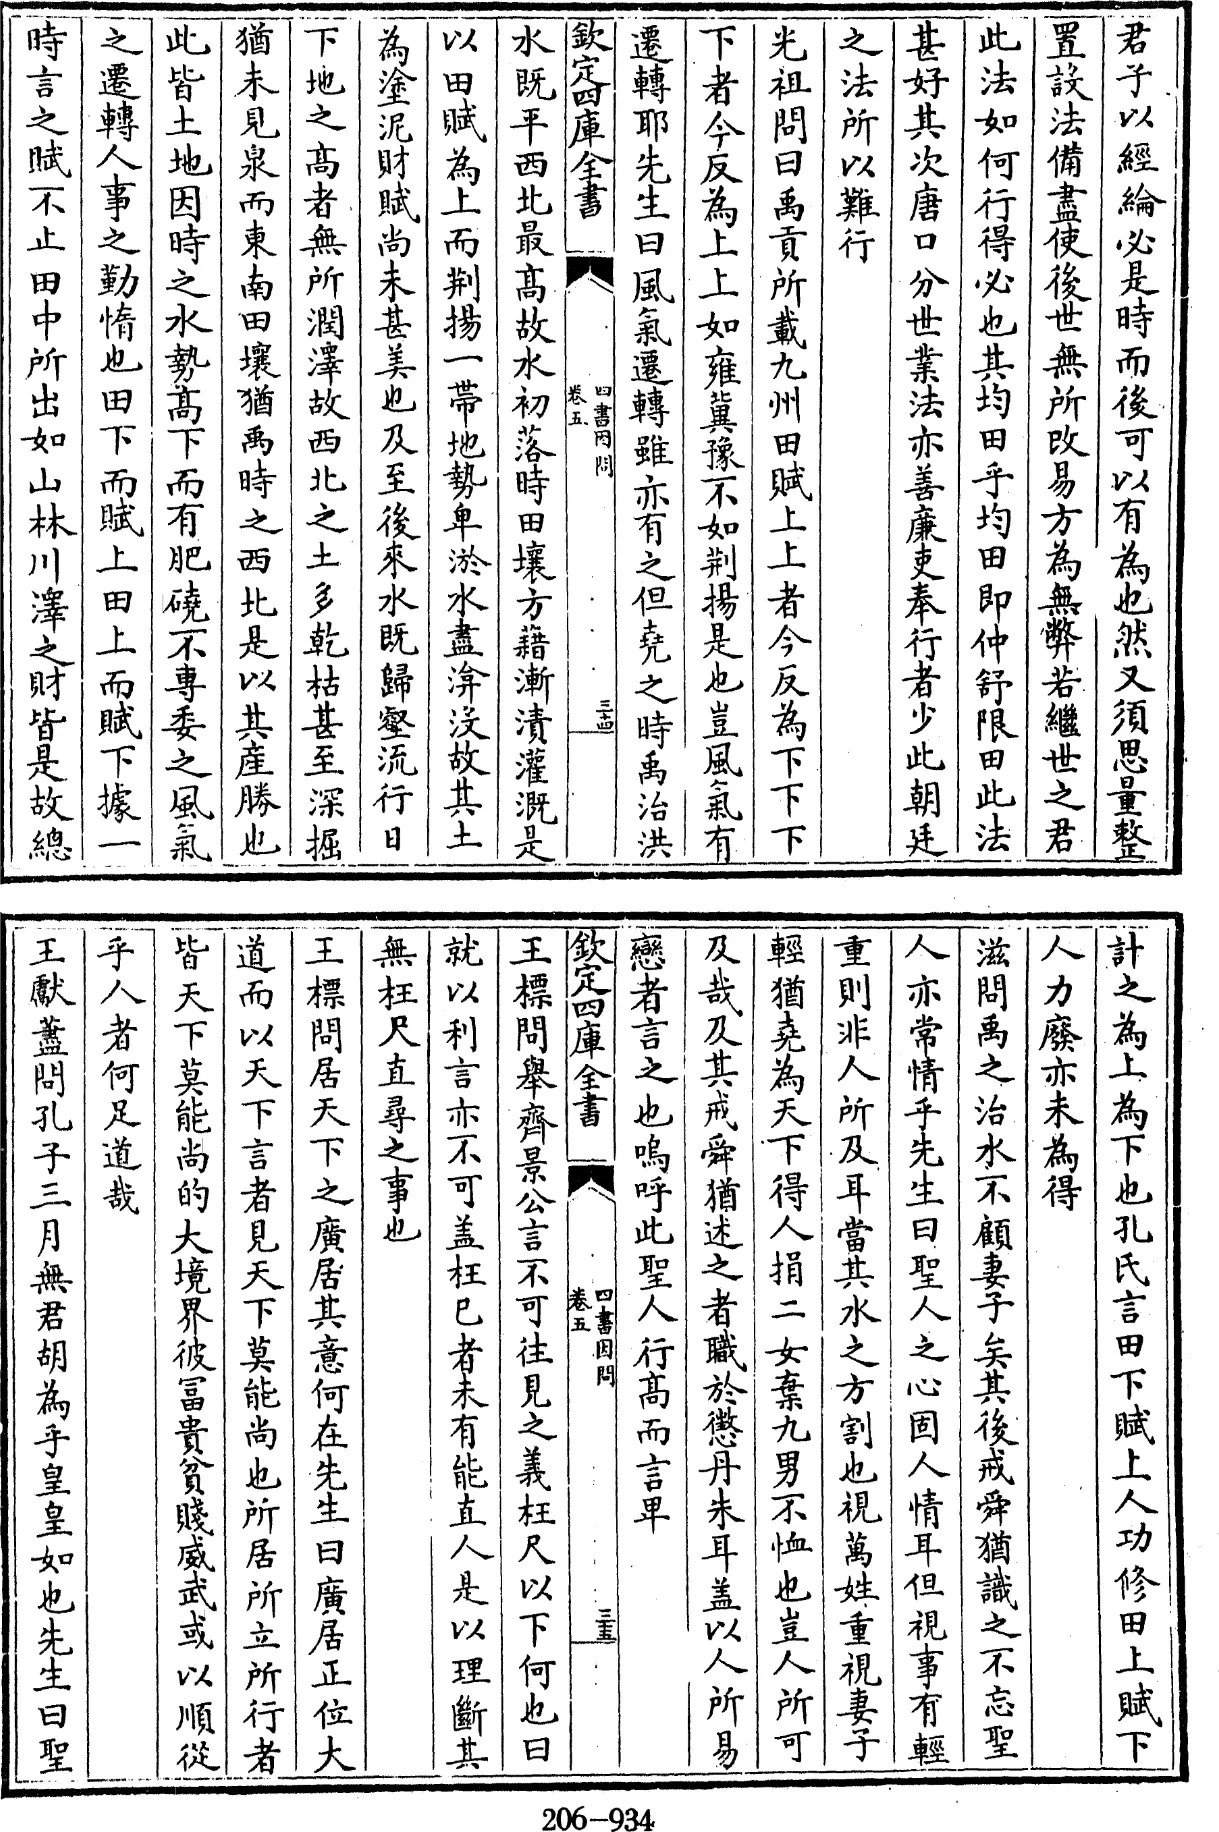 君子以經綸必是時而後可以有為也然又須思量整
置設法備盡使後世無所改易方為無弊若繼世之君
此法如何行得必也其均田乎均田即仲舒限田此法
甚好其次唐口分世業法亦善廉吏奉行者少此朝廷
之法所以難行
光祖問曰禹貢所載九州田賦上上者今反為下下下
下者今反為上上如雍冀豫不如荆揚是也豈風氣有
遷轉耶先生曰風氣遷轉雖亦有之但堯之時禹治洪
欽定四庫全書
四書因問
卷五
三十四
水既平西北最高故水初落時田壤方藉漸漬灌溉是
以田賦為上而荆揚一帶地勢卑淤水盡渰沒故其土
為塗泥財賦尚未甚美也及至後來水既歸壑流行日
下地之高者無所潤澤故西北之土多乾枯甚至深掘
猶未見泉而東南田壤猶禹時之西北是以其産勝也
此皆土地因時之水勢高下而有肥磽不專委之風氣
之遷轉人事之勤惰也田下而賦上田上而賦下據一
時言之賦不止田中所出如山林川澤之財皆是故總
計之為上為下也孔氏言田下賦上人功修田上賦下
人力廢亦未為得
滋問禹之治水不顧妻子矣其後戒舜猶識之不忘聖
人亦常情乎先生曰聖人之心固人情耳但視事有輕
重則非人所及耳當其水之方割也視萬姓重視妻子
輕猶堯為天下得人捐二女棄九男不恤也豈人所可
及哉及其戒舜猶述之者職於懲丹朱耳盖以人所易
戀者言之也嗚呼此聖人行高而言卑
欽定四庫全書
四書因問
卷五
三十五
王標問舉齊景公言不可往見之義枉尺以下何也曰
就以利言亦不可盖枉已者未有能直人是以理斷其
無枉尺直尋之事也
王標問居天下之廣居其意何在先生曰廣居正位大
道而以天下言者見天下莫能尚也所居所立所行者
皆天下莫能尚的大境界彼冨貴貧賤威武或以順從
乎人者何足道哉
王獻藎問孔子三月無君胡為乎皇皇如也先生曰聖
206-934